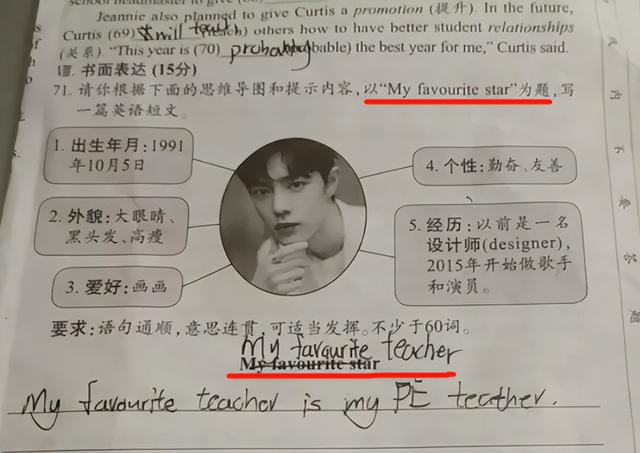 school headmaster to give (68)
Jeannie also planned to give Curtis a promotion (提升). In the future,
Curtis (69) will teach (teach) others how to have better student relationships
(关系). “This year is (70) probably (probable) the best year for me,” Curtis said.
Ⅷ. 书面表达 (15分)
71. 请你根据下面的思维导图和提示内容,以“My favourite star”为题,写
一篇英语短文。
1. 出生年月:1991
年10月5日
2. 外貌:大眼睛、
黑头发、高瘦
3. 爱好:画画
4. 个性:勤奋、友善
5. 经历:以前是一名
设计师(designer),
2015年开始做歌手
和演员。
要求:语句通顺,意思连贯,可适当发挥。不少于60词。
My favourite teacher
My favourite star
My favourite teacher is my PE teather.
内
不
要
答
题